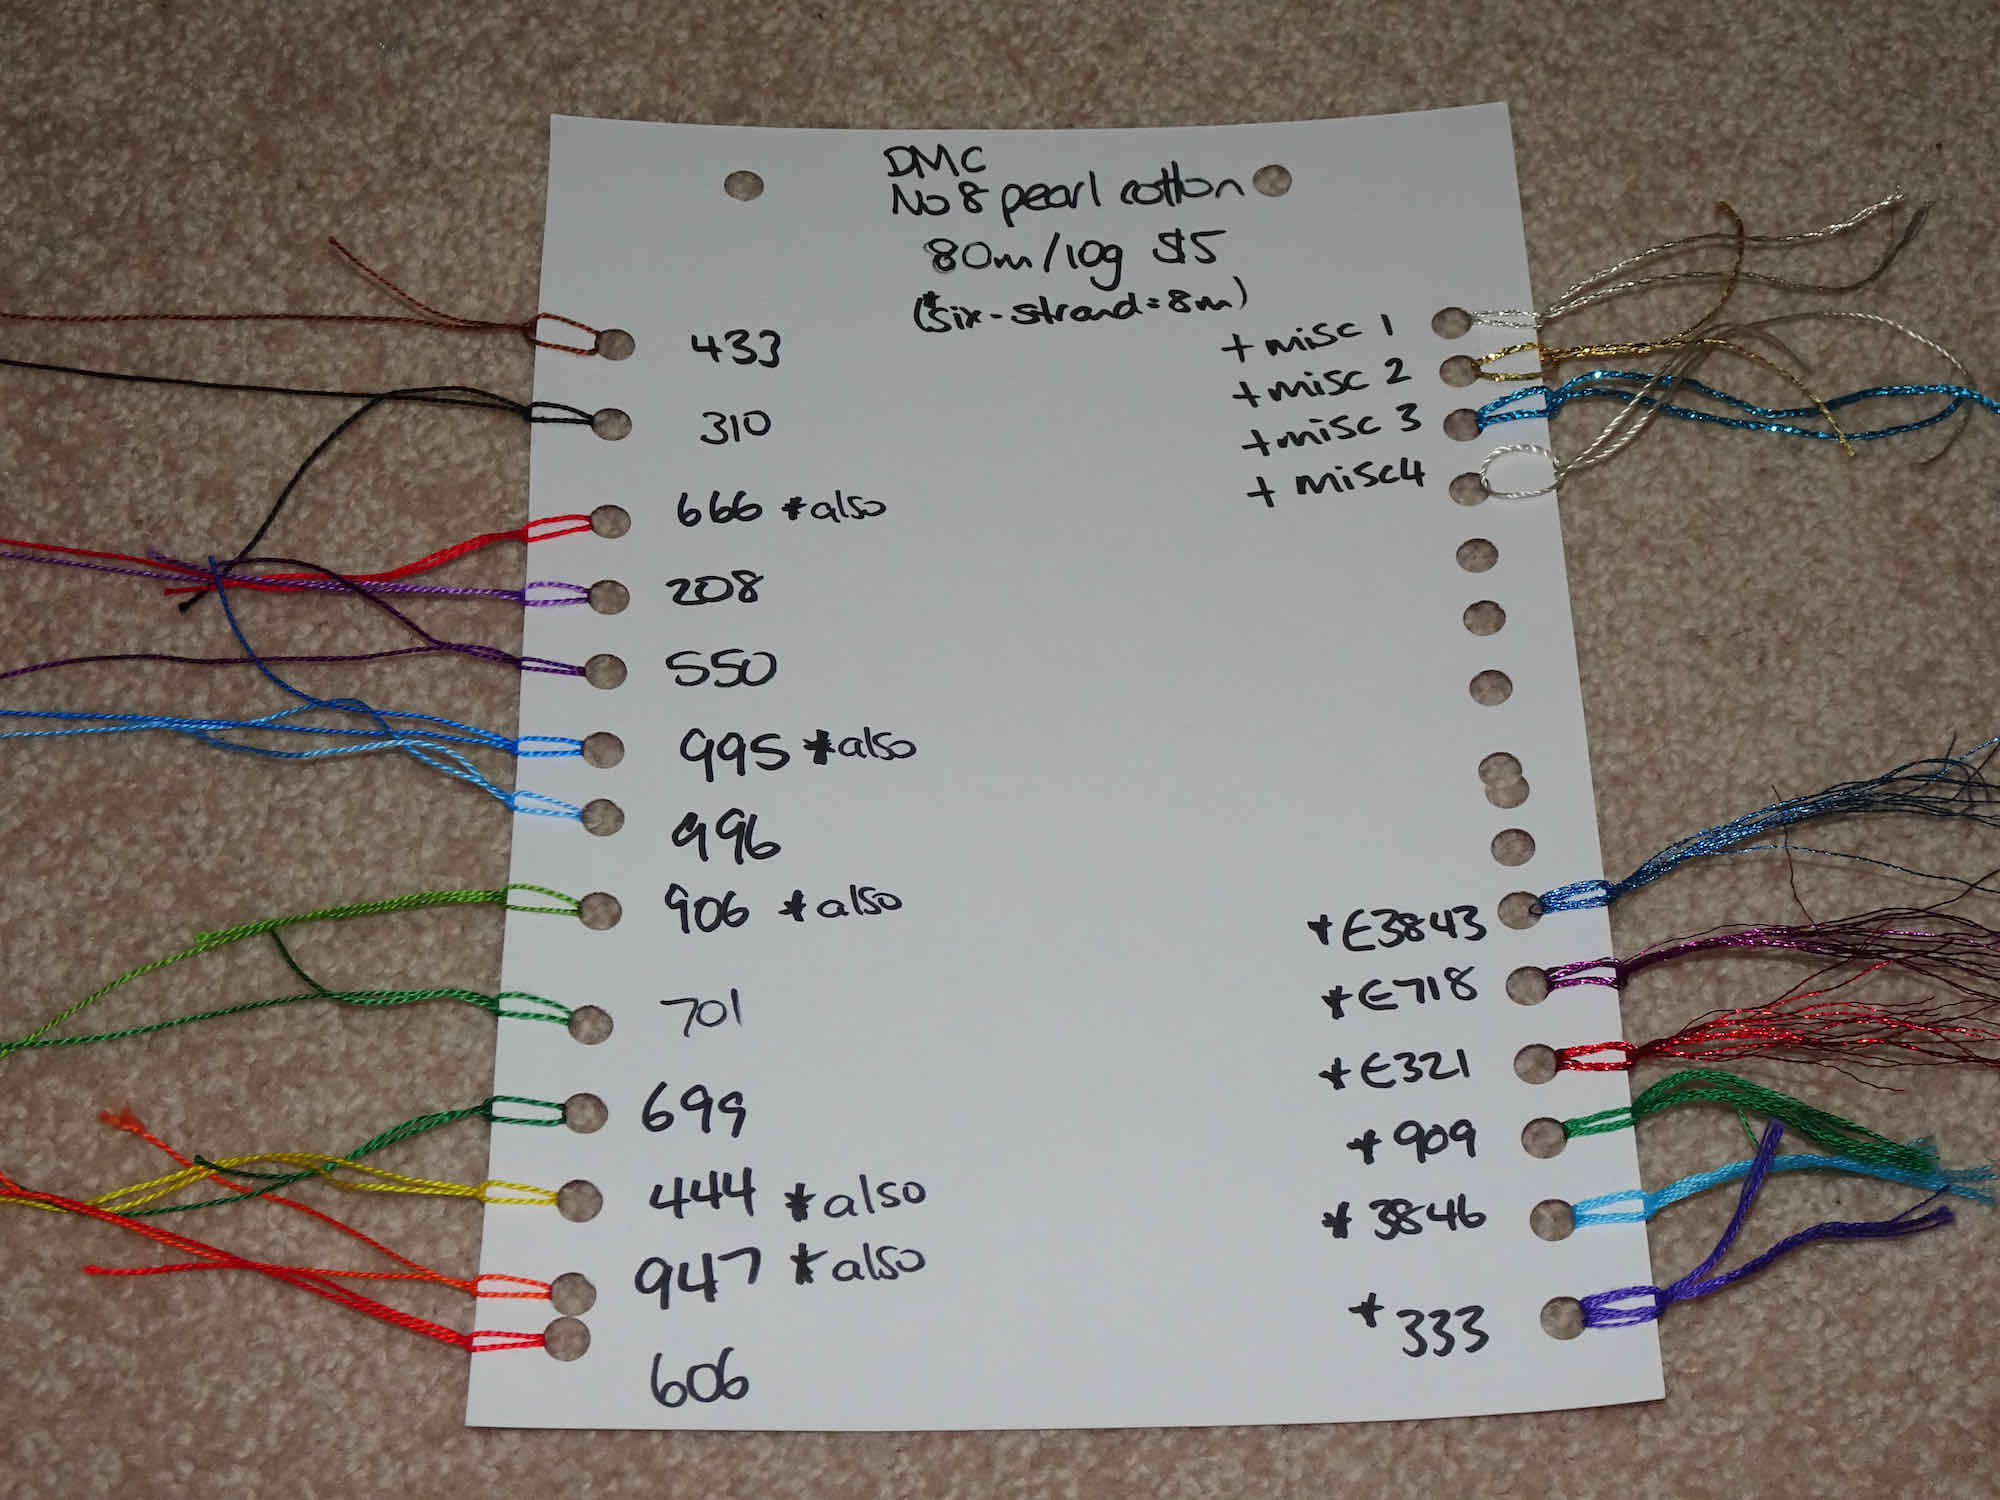 DMC
No 8 pearl cotton
80m/10g $15
(*six-strand=8m)
433
310
666 *also
208
550
995 *also
996
906 *also
701
699
444 *also
947 *also
606
+ misc 1
+ misc 2
+ misc 3
+ misc 4
*E3843
*E718
*E321
*909
*3846
*333